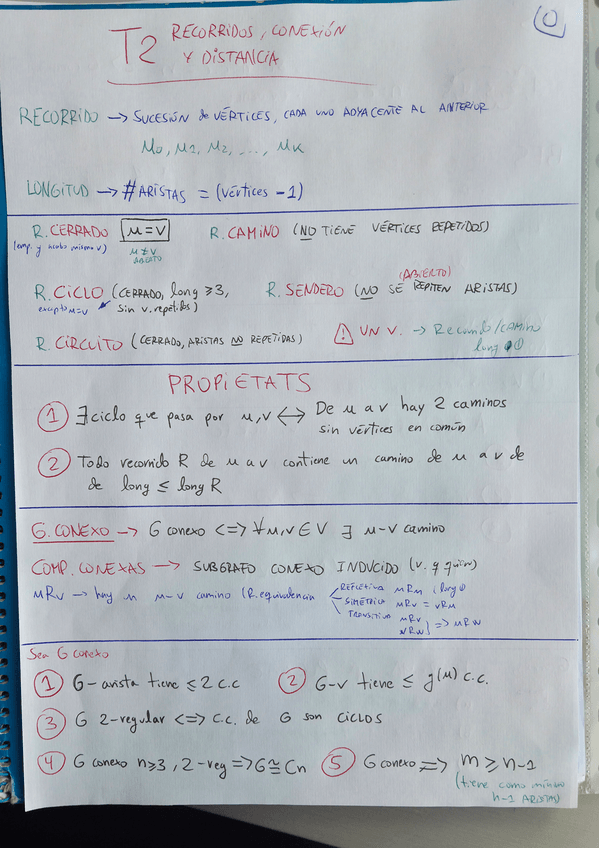 T2 RECORRIDOS, CONEXIÓN
Y DISTANCIA
0
RECORRIDO → SUCESIÓN de VÉRTICES, CADA UNO ADYACENTE AL ANTERIOR
u0, u1, u2, ..., uk
LONGITUD → #ARISTAS = (vértices - 1)
R. CERRADO u = v R. CAMINO (NO TIENE VÉRTICES REPETIDOS)
(emp. y acabo mismo v) u ≠ v
ABIERTO
R. CICLO (CERRADO, long ≥ 3, R. SENDERO (NO SE REPITEN ARISTAS)
(ABIERTO)
excepto u=v sin v. repetidos)
R. CIRCUITO (CERRADO, ARISTAS NO REPETIDAS) ⚠ UN V. → Recorrido/CAMINO
long 0
PROPIETATS
1 ∃ciclo que pasa por u,v ↔ De u a v hay 2 caminos
sin vértices en común
2 Todo recorrido R de u a v contiene un camino de u a v de
de long ≤ long R
G. CONEXO → G conexo <=> ∀u,v ∈ V ∃ u-v camino
COMP. CONEXAS → SUBGRAFO CONEXO INDUCIDO (v. q
uRv → hay un u-v camino (R. equivalencia
REFLETIVA uRu (long 0
SIMÉTRICA uRv = vRu
TRANSITIVA uRv
vRw } => uRw
Sea G conexo
1 G-arista tiene ≤ 2 c.c 2 G-v tiene ≤ g(u) c.c.
3 G 2-regular <=> c.c. de G son CICLOS
4 G conexo n≥3, 2-reg => G≅Cn 5 G conexo => m ≥ n-1
(tiene como mínimo
n-1 ARISTAS)